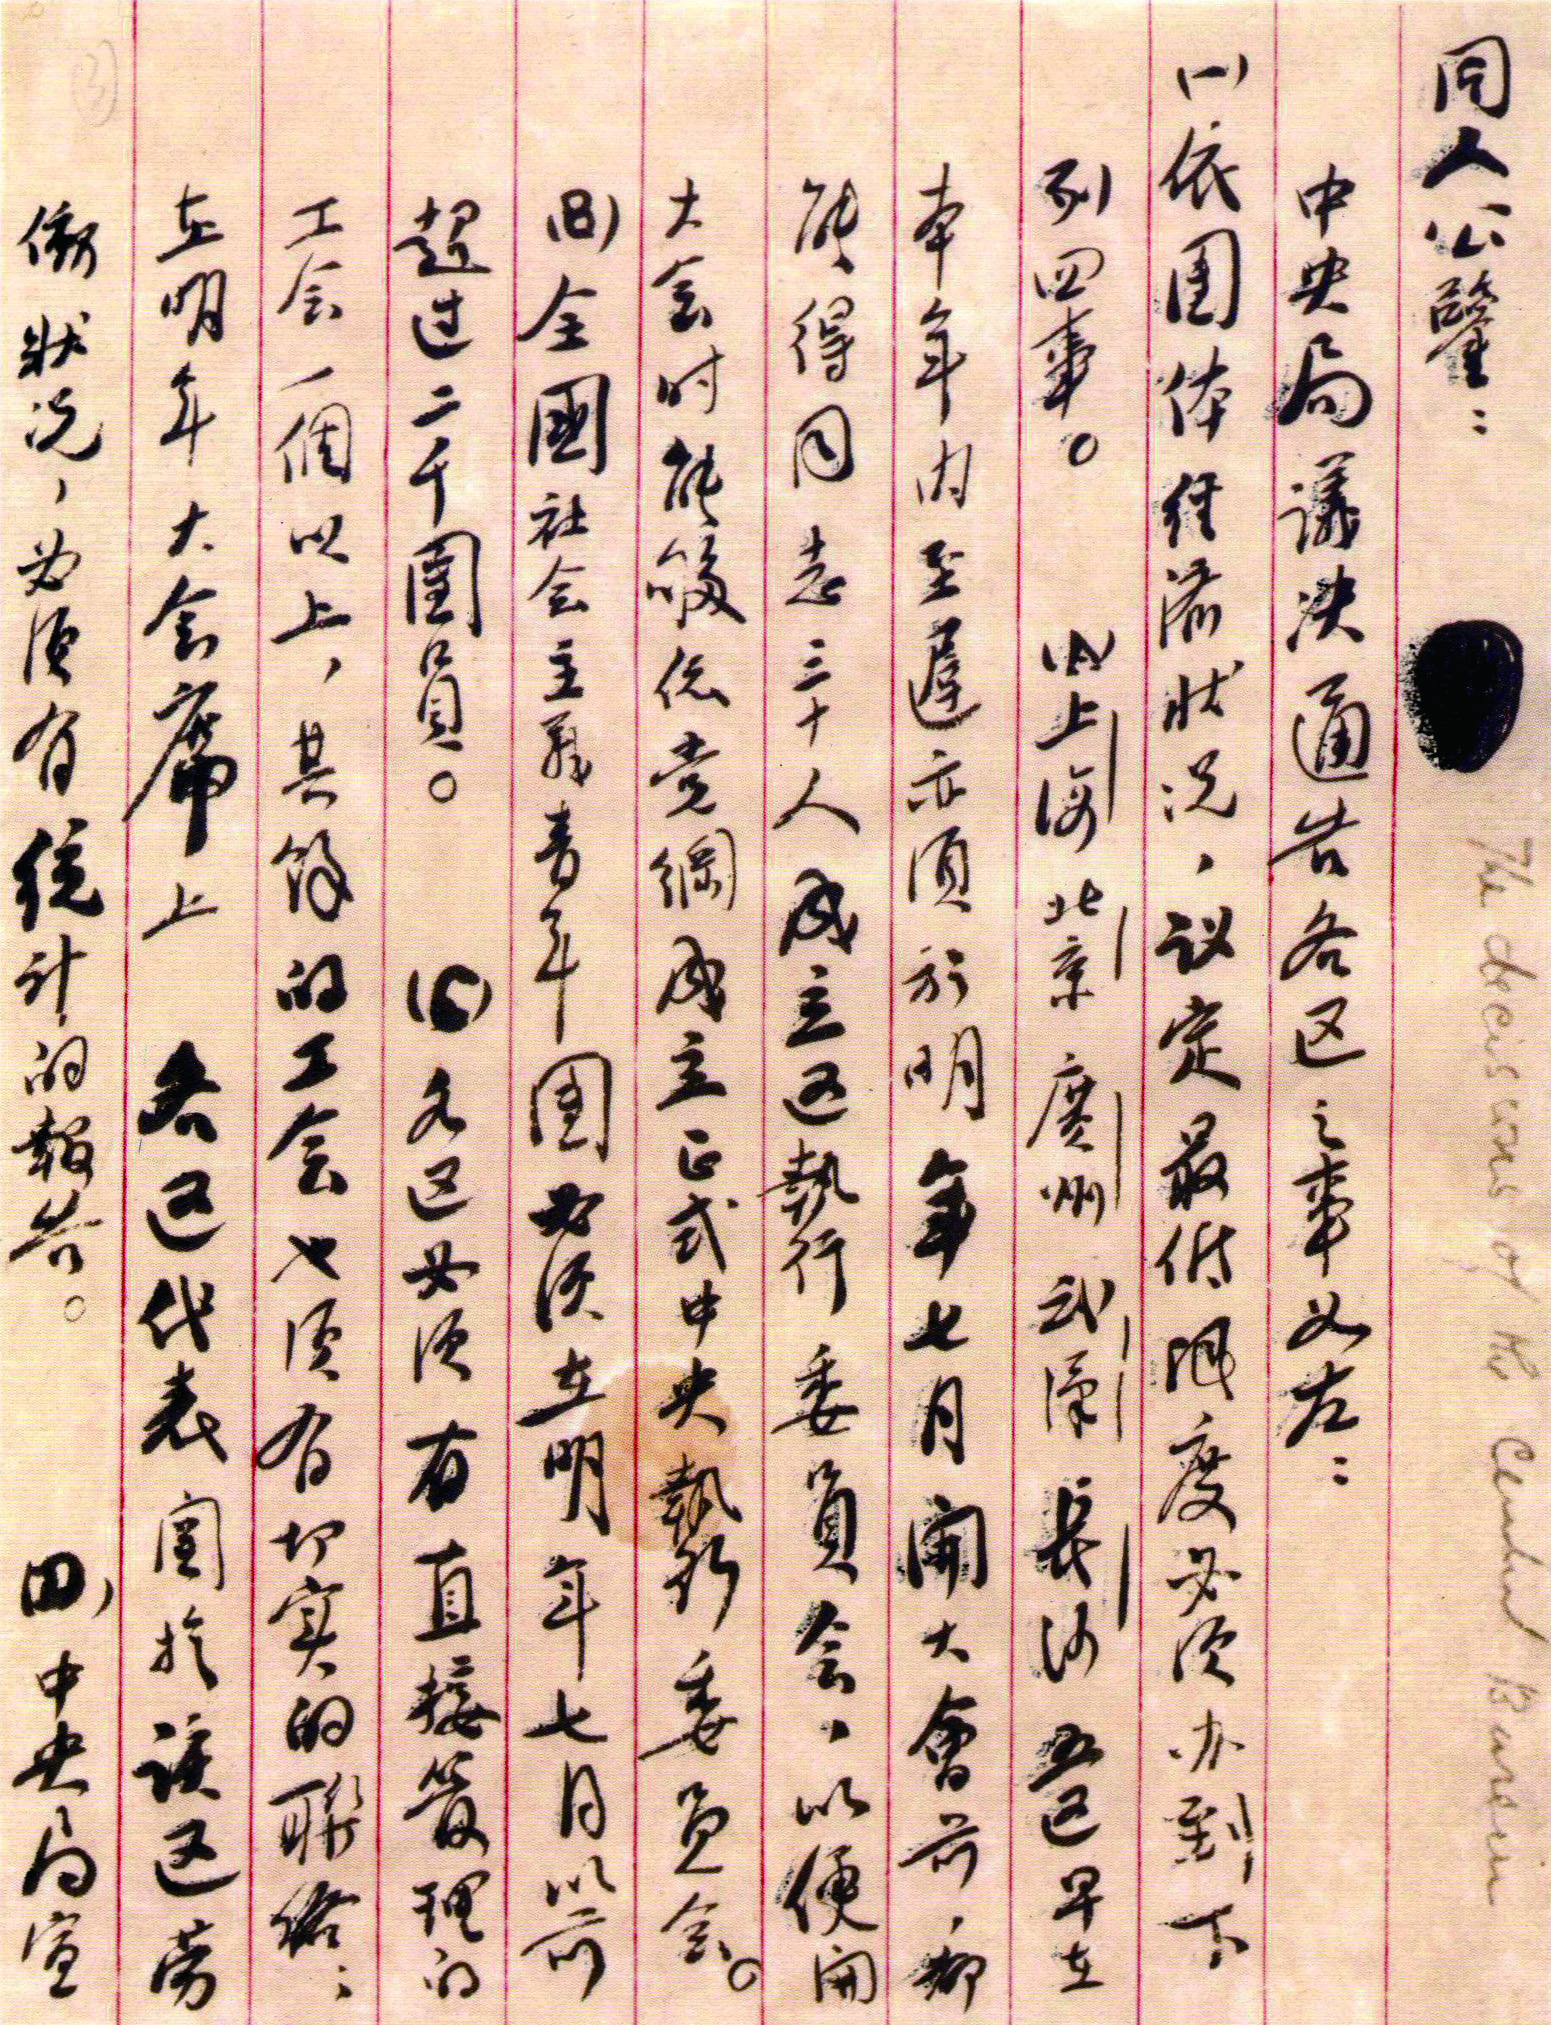 同人公鑒：
中央局議决通告各区之事如左：
(一)依团体经济状况，议定最低限度必须办到下
列四事。 (A)上海 北京 廣州 武漢 長沙 五区早在
本年内至遲亦須於明年七月開大會前，都
能得同志三十人成立区執行委員会，以便開
大会时能够依党綱成立正式中央執行委員会。
(B)全國社会主義青年团必须在明年七月以前
超过二千團員。 (C)各区必须有直接管理的
工会一個以上，其餘的工会也须有切实的联络；
在明年大会席上 各区代表 关於該区劳
働狀况，必须有统計的報告。 (D)中央局宣
The decisions of the Central Bureau
(3)